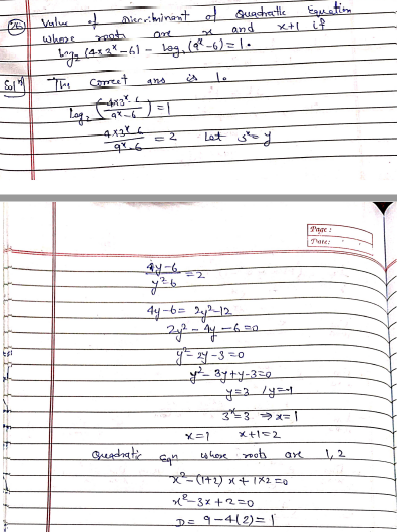 25 Value of Discriminant of Quadratic Equation
whose roots are x and x+1 if
log₂(4×3ˣ-6) - log₂(9ˣ-6) = 1.
Solⁿ The correct ans is 1.
log₂ (4×3ˣ-6 / 9ˣ-6) = 1
4×3ˣ-6 / 9ˣ-6 = 2 Let 3ˣ=y
Page :
Date:
4y-6 / y²-6 = 2
4y-6 = 2y²-12
2y² - 4y - 6=0
y² - 2y - 3 =0
y² - 3y + y - 3=0
y=3 / y=-1
3ˣ=3 ⇒ x=1
x=1 x+1=2
Quadratic eqn whose roots are 1, 2
x² - (1+2) x + 1×2 =0
x² - 3x + 2 =0
D = 9 - 4(2) = 1